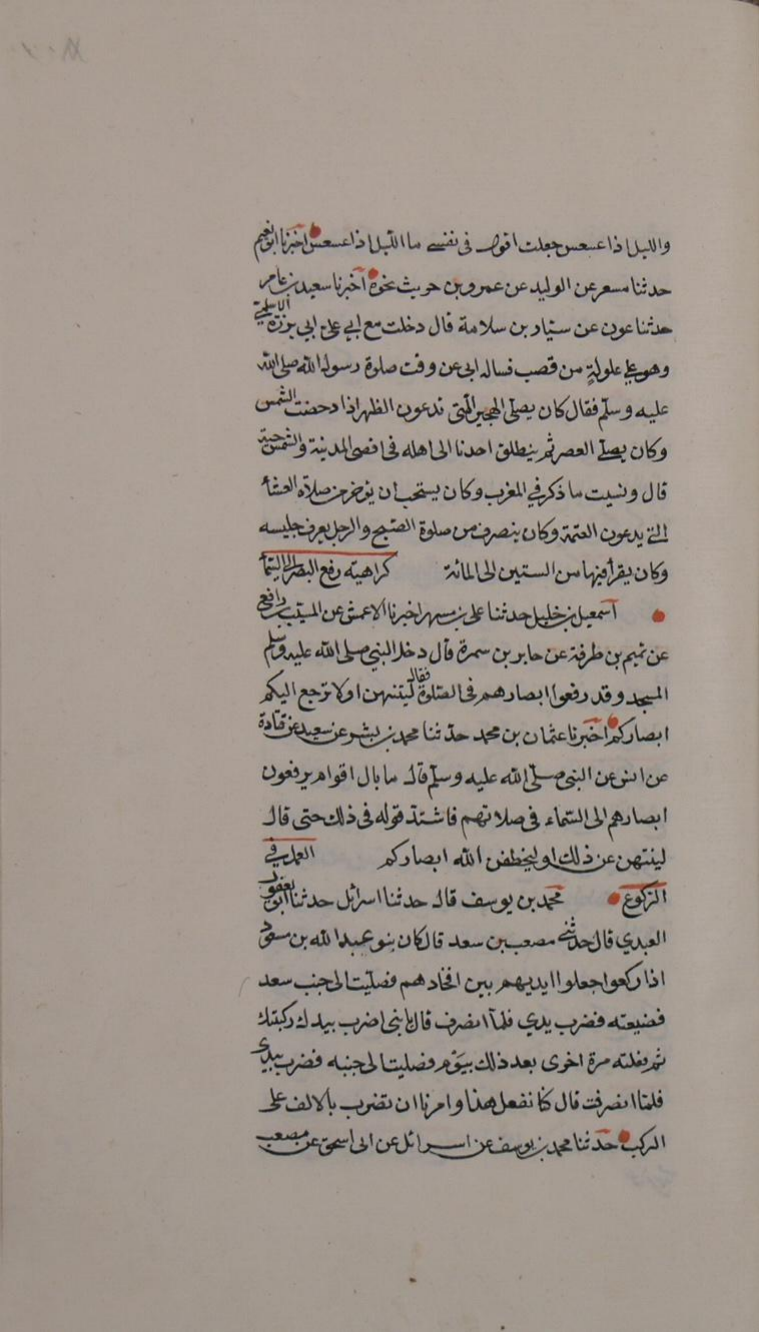 والليل اذا عسعس جعلت اقول فى نفسى ما الليل اذا عسعس اخبرنا ابو نعيم
حدثنا مسعر عن الوليد عن عمرو بن حريث نحوه اخبرنا سعيد بن عامر
حدثنا عون عن سيار بن سلامة قال دخلت مع ابي على ابي برزة الاسلمي
وهو على علولة من قصب فساله ابى عن وقت صلوة رسول الله صلى الله
عليه وسلم فقال كان يصلى الهجير التى تدعون الظهر اذا دحضت الشمس
وكان يصلى العصر ثم ينطلق احدنا الى اهله فى اقصى المدينة والشمس حية
قال ونسيت ما ذكر في المغرب وكان يستحب ان يؤخر من صلاة العشاء
التى يدعون العتمة وكان ينصرف من صلوة الصبح والرجل يعرف جليسه
وكان يقرأ فيها من الستين الى المائة كراهية رفع البصر الى السما
اسمعيل بن خليل حدثنا على بن مسهر اخبرنا الاعمش عن المسيب بن رافع
عن تميم بن طرفة عن جابر بن سمرة قال دخل النبي صلى الله عليه وسلم
المسجد وقد رفعوا ابصارهم فى الصلوة فقال لينتهن او لا ترجع اليكم
ابصاركم اخبرنا عثمان بن محمد حدثنا محمد بن بشر عن سعيد عن قتادة
عن انس عن النبى صلى الله عليه وسلم قال ما بال اقوام يرفعون
ابصارهم الى السماء فى صلاتهم فاشتد قوله فى ذلك حتى قال
لينتهن عن ذلك او ليخطفن الله ابصاركم العمل في
الركوع محمد بن يوسف قال حدثنا اسرائل حدثنا ابو يعفور
العبدي قال حدثنى مصعب بن سعد قال كان بنو عبد الله بن مسعود
اذا ركعوا جعلوا ايديهم بين افخادهم فصليت الى جنب سعد
فضيعته فضرب يدي فلما انصرف قال يا بنى اضرب بيدك ركبتك
ثم فعلته مرة اخرى بعد ذلك بيوم فصليت الى جنبه فضرب بيدى
فلما انصرفت قال كنا نفعل هذا وامرنا ان نضرب بالالف على
الركب حدثنا محمد بن يوسف عن اسرائل عن ابى اسحق عن مصعب